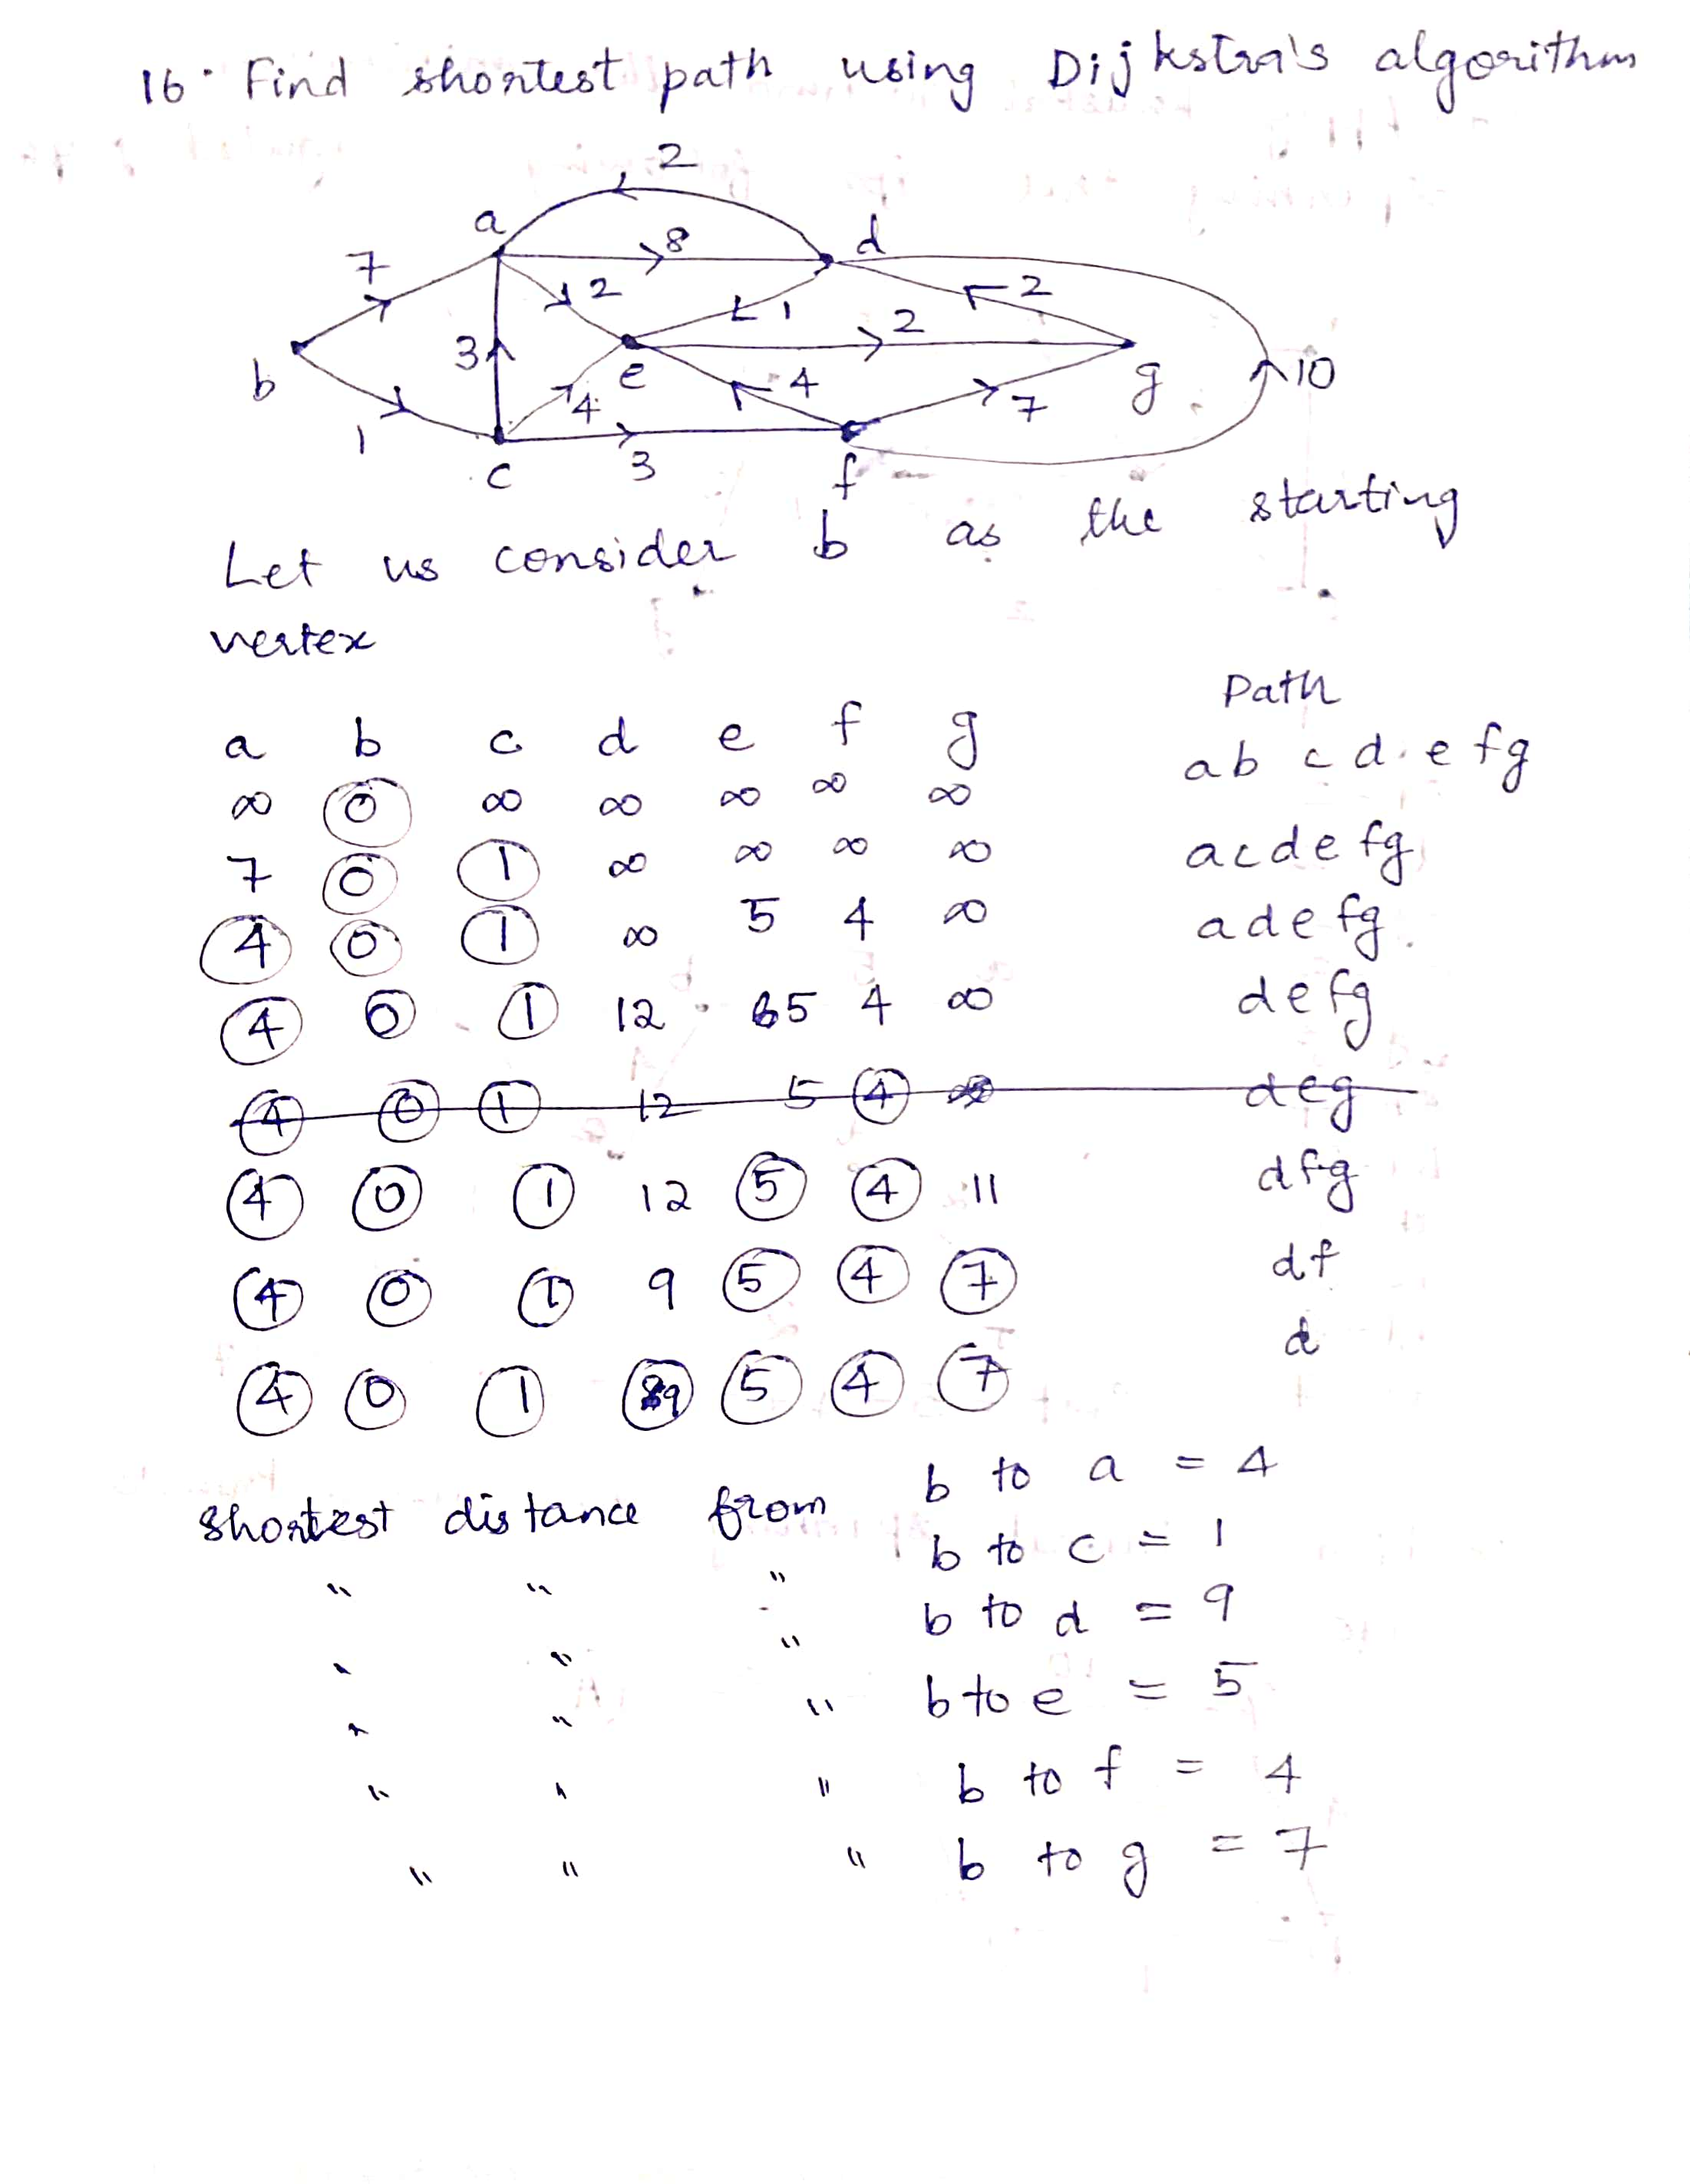 16. Find shortest path using Dijkstra's algorithm
2
a 8 d
7 2 1 2
3 2
b e 4 g 10
4 7
1
c 3 f
Let us consider b as the starting
vertex
Path
a b c d e f g a b c d e f g
∞ 0 ∞ ∞ ∞ ∞ ∞
7 0 1 ∞ ∞ ∞ ∞ a c d e f g
4 0 1 ∞ 5 4 ∞ a d e f g
4 0 1 12 5 4 ∞ d e f g
4 0 1 12 5 4 ∞ d e g
4 0 1 12 5 4 11 d f g
4 0 1 9 5 4 7 d f
d
4 0 1 9 5 4 7
shortest distance from b to a = 4
" " " b to c = 1
" " " b to d = 9
" " " b to e = 5
" " " b to f = 4
" " " b to g = 7